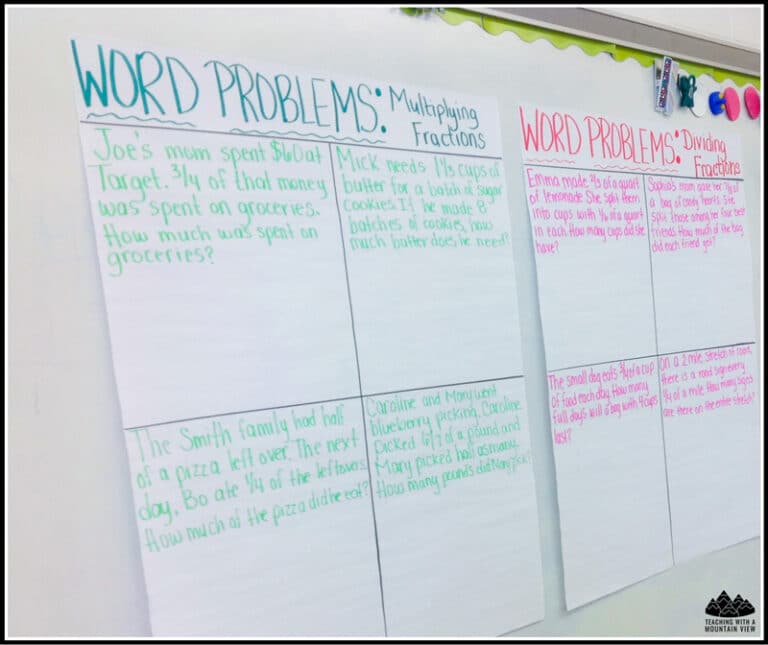 WORD PROBLEMS: Multiplying
Fractions
Joe's mom spent $60 at
Target. 3/4 of that money
was spent on groceries.
How much was spent on
groceries?
Mick needs 1 1/3 cups of
butter for a batch of sugar
cookies. If he made 8
batches of cookies, how
much butter does he need?
The Smith family had half
of a pizza left over. The next
day, Bo ate 1/4 of the leftovers.
How much of the pizza did he eat?
Caroline and Mary went
blueberry picking. Caroline
picked of a pound and
Mary picked half as many.
How many pounds did Mary pick?
WORD PROBLEMS: Dividing
Fractions
Emma made 2/3 of a quart
of lemonade. She split them
into cups with 1/6 of a quart
in each. How many cups did she
have?
Sophia's mom gave her 7/8 of
a bag of candy hearts. She
split those among her four best
friends. How much of the bag
did each friend get?
The small dog eats 3/4 of a cup
of food each day. How many
full days will a bag with 4 cups
last?
On a 2 mile stretch of road,
there is a road sign every
1/4 of a mile. How many signs
are there on the entire stretch?
TEACHING WITH A
MOUNTAIN VIEW